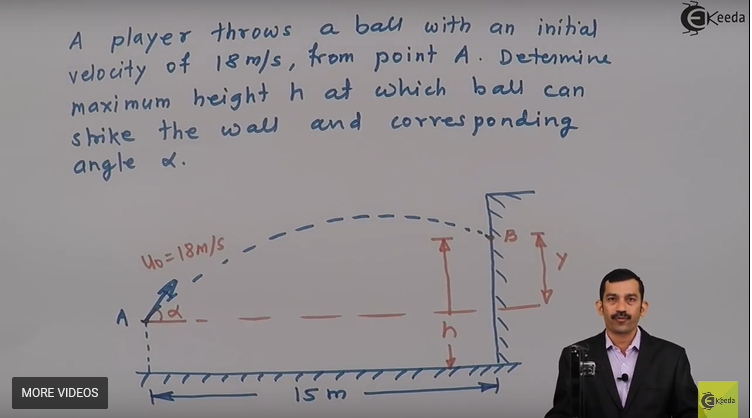 EKeeda
A player throws a ball with an initial
velocity of 18m/s, from point A. Determine
maximum height h at which ball can
strike the wall and corresponding
angle α.
u₀ = 18m/s
B
y
A
α
h
15m
MORE VIDEOS
EKeeda